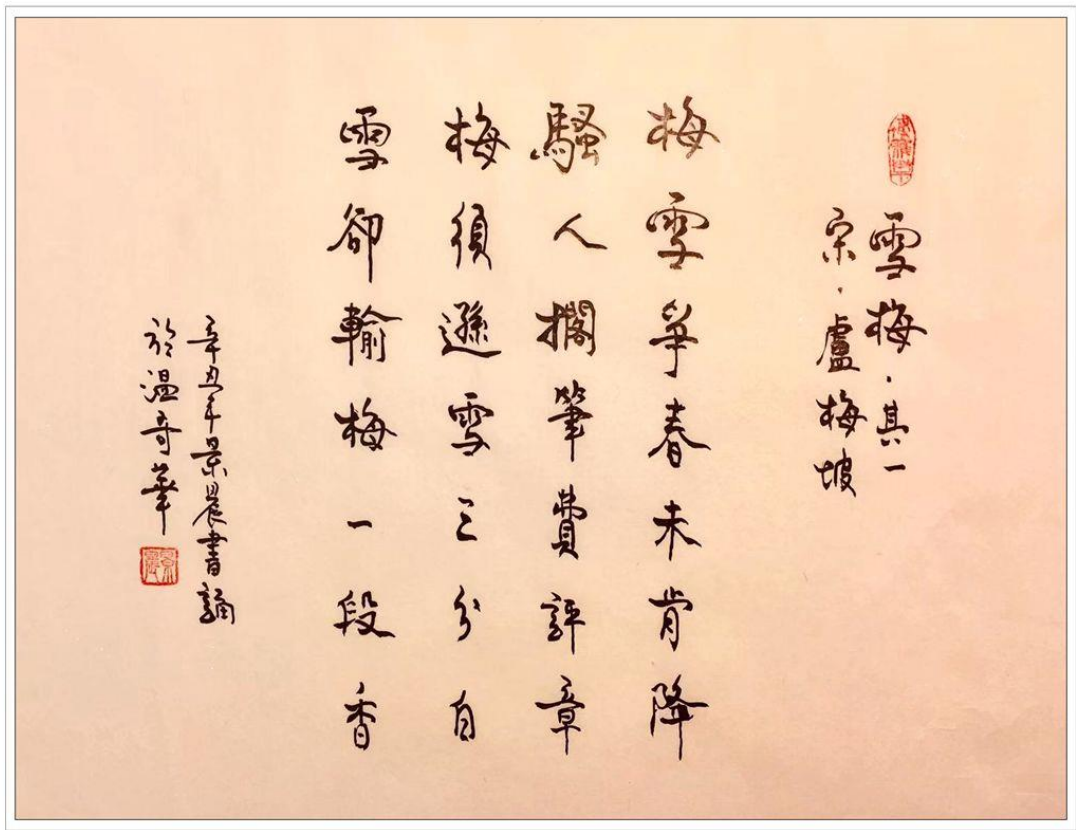 雪梅·其一
宋·盧梅坡
梅雪爭春未肯降
騷人擱筆費評章
梅須遜雪三分自
雪卻輸梅一段香
辛丑年景晨書誦
於溫哥華